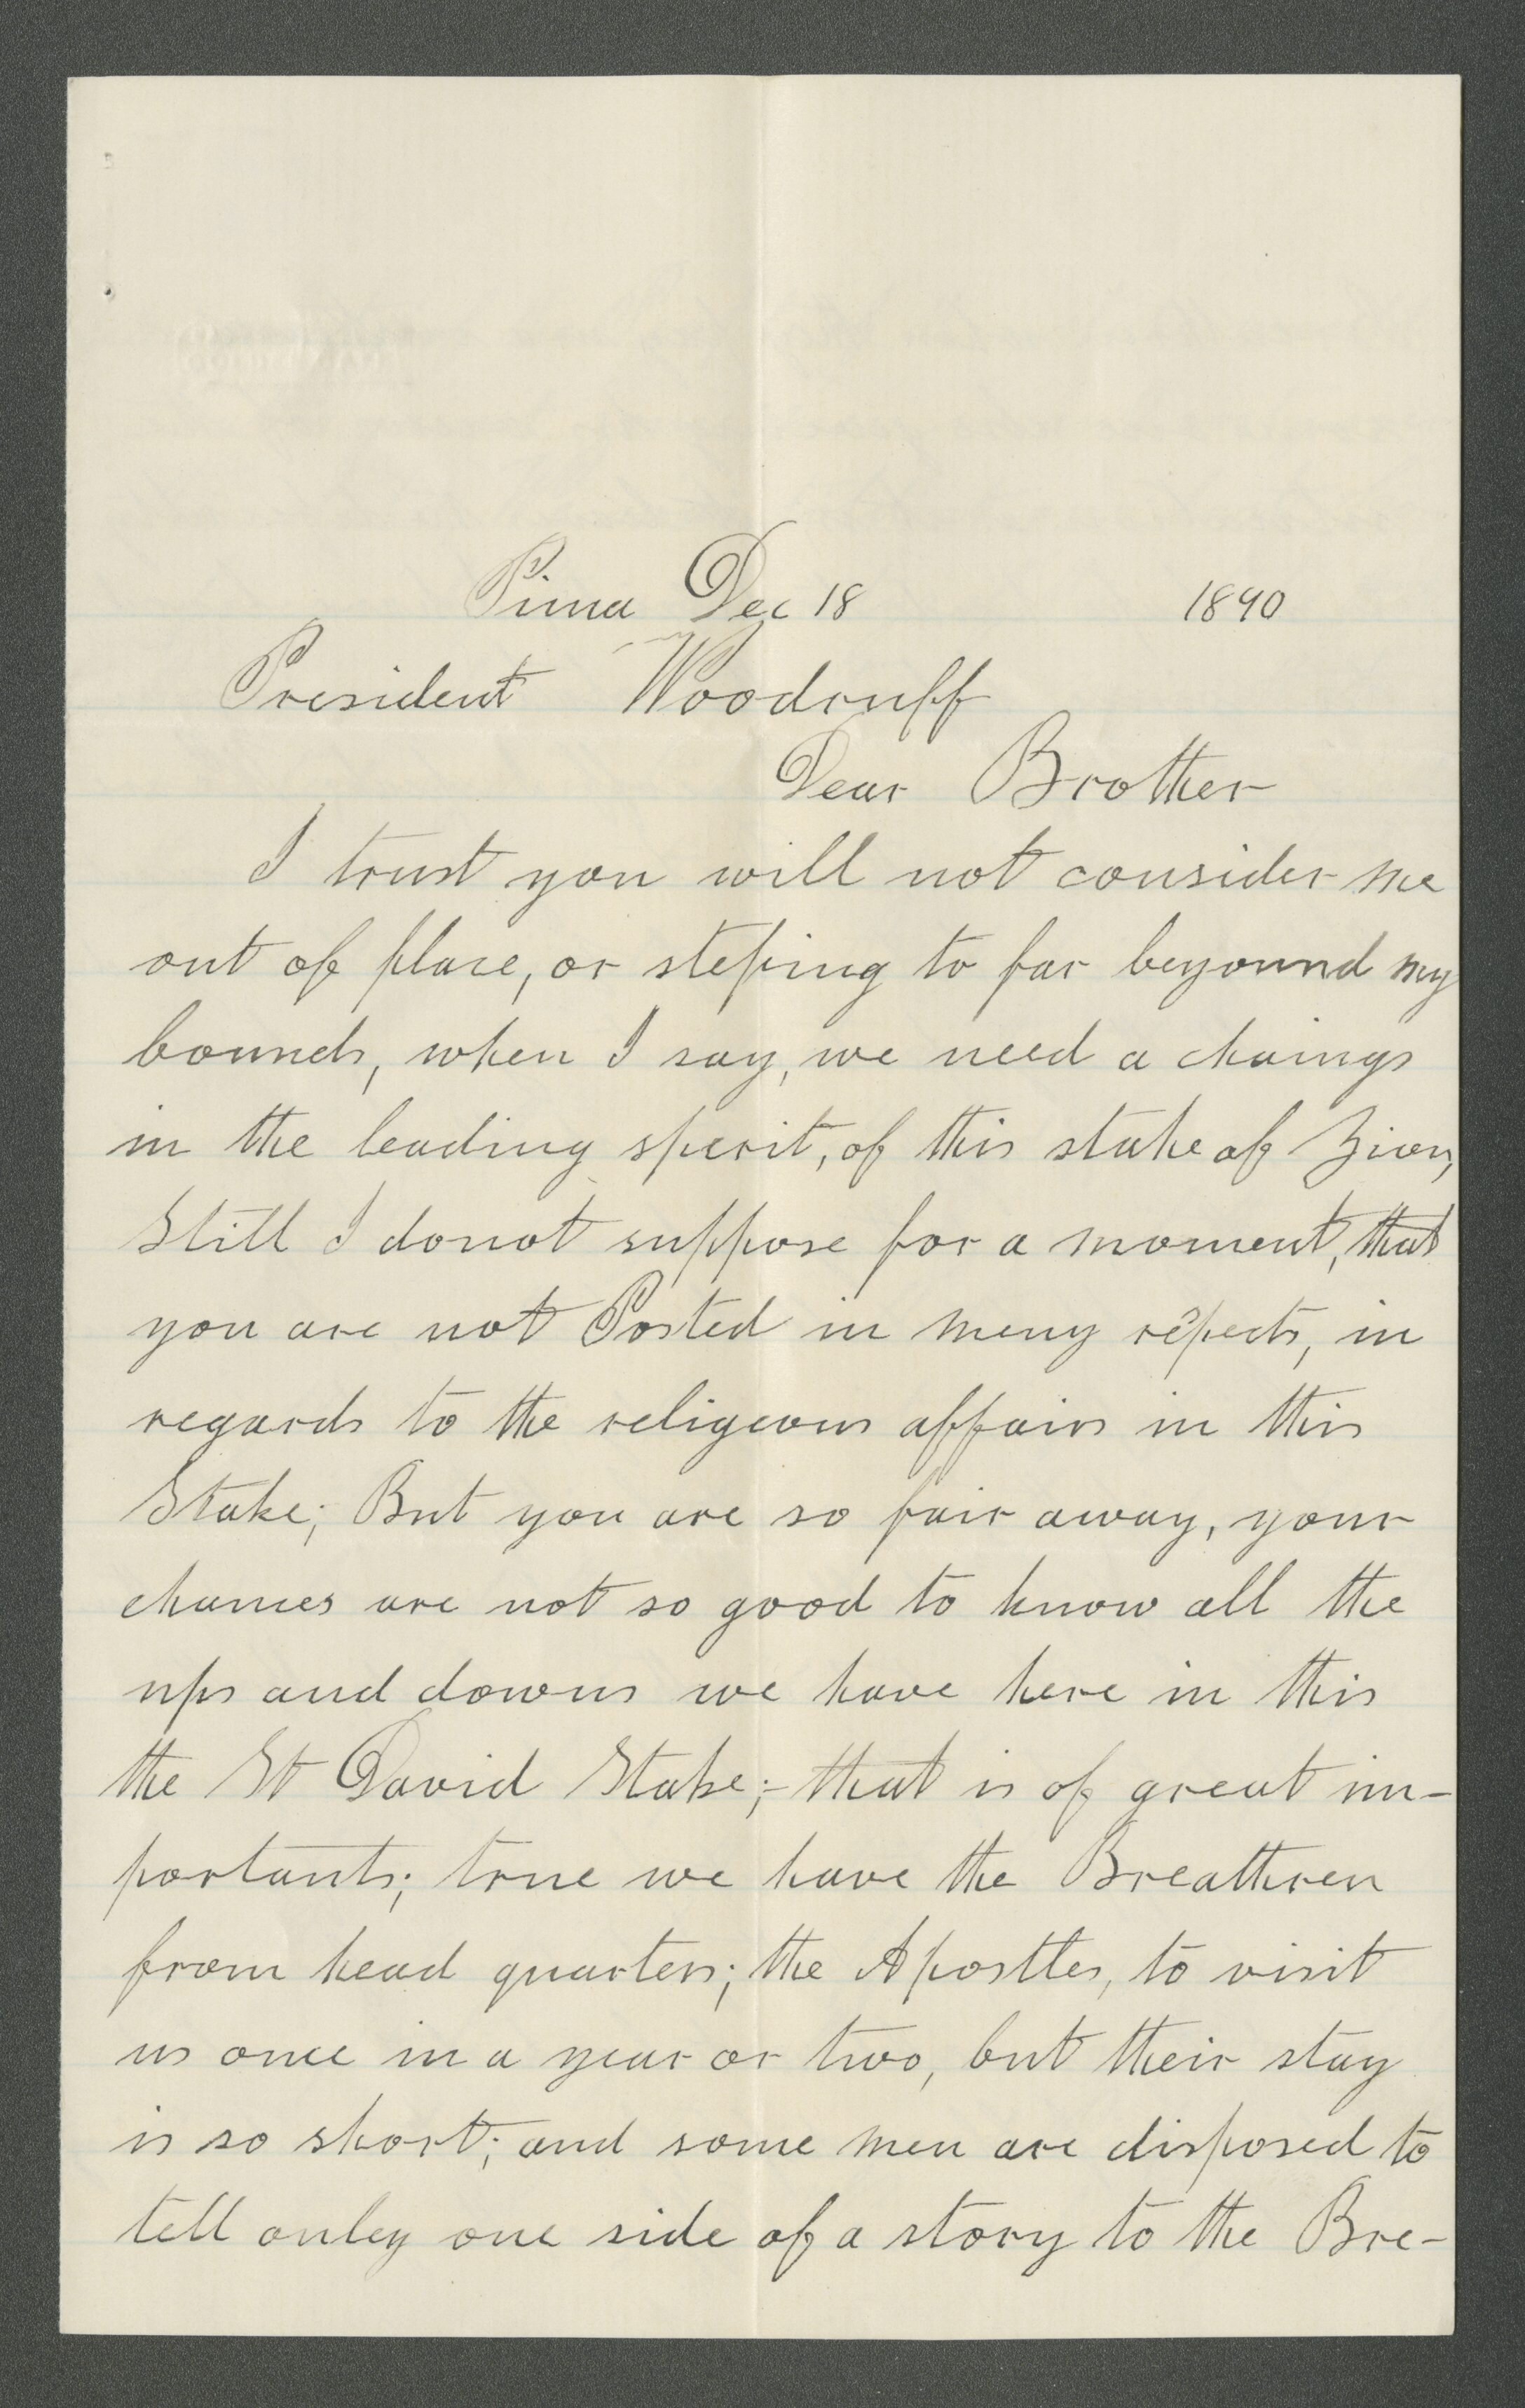 Pima Dec 18 1890
President Woodruff
Dear Brother
I trust you will not consider me
out of place, or steping to far beyound my
bounds, when I say, we need a chaings
in the leading sperit, of this stake of Zion,
Still I donot suppose for a moment, that
you are not Posted in meny respects, in
regards to the religeous affairs in this
Stake; But you are so fair away, your
chances are not so good to know all the
ups and downs we have here in this
the St David Stake;- that is of great im-
portants; true we have the Breathren
from head quarters; the Apostles, to visit
us once in a year or two, but their stay
is so short; and some men are disposed to
tell onley one side of a story to the Bre-